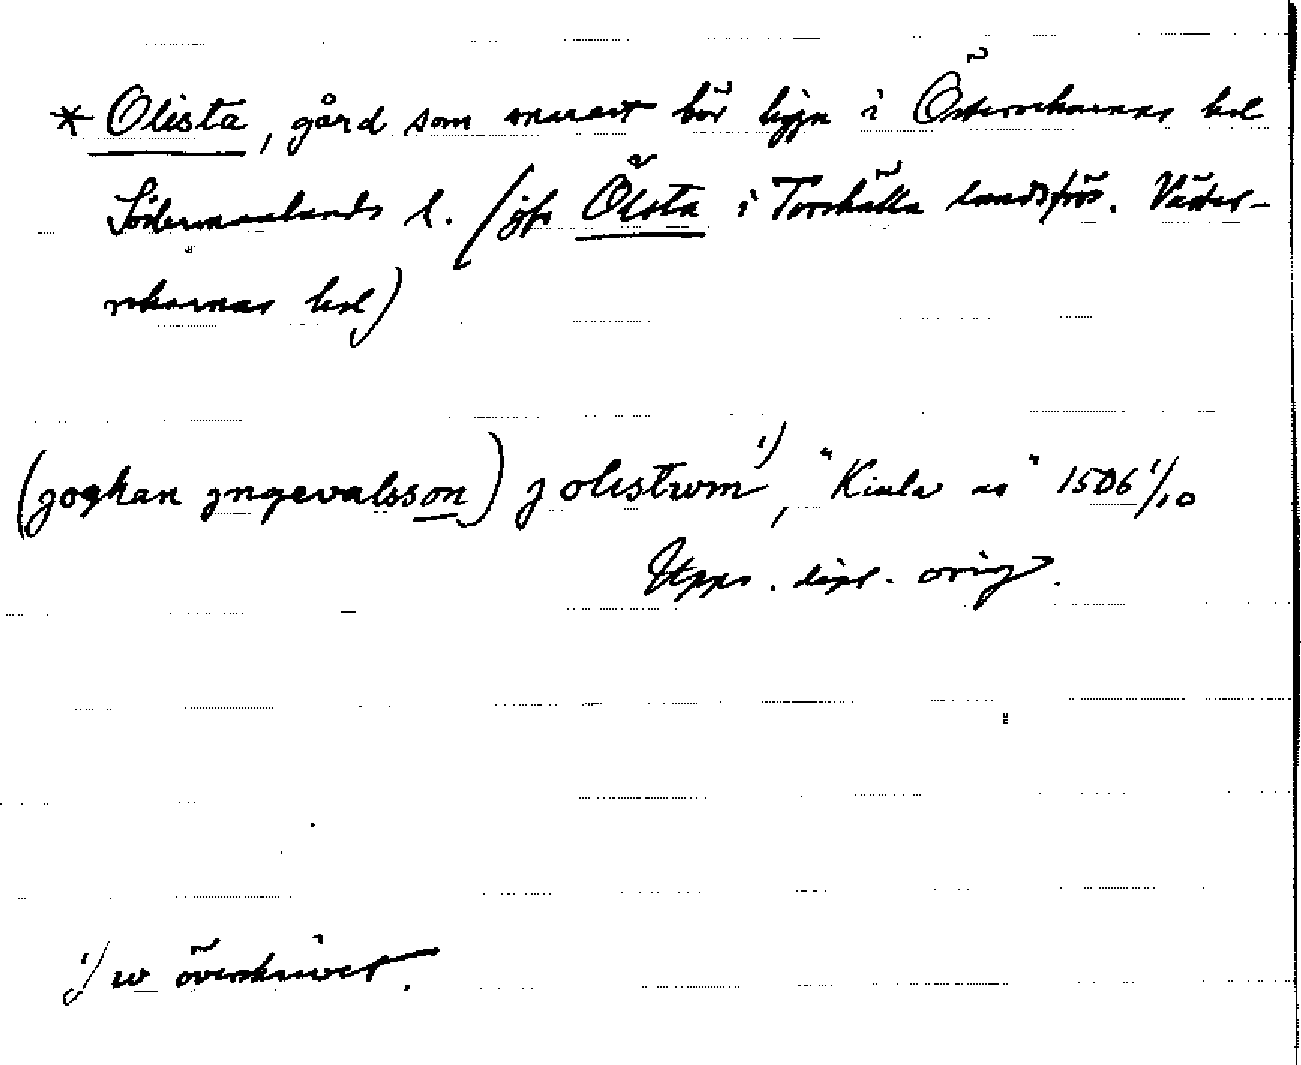 * Olista, gård som snarast bör ligga i Österrekarnes hd
Södermanlands l. (jfr Ölsta i Torshälla landsförs. Väster-
rekarnes hd)
(joghan jngevalsson) j olistwm 1), "Kiula as" 1506 1/10
Upps. dipl. orig.
1) w överskrivet.